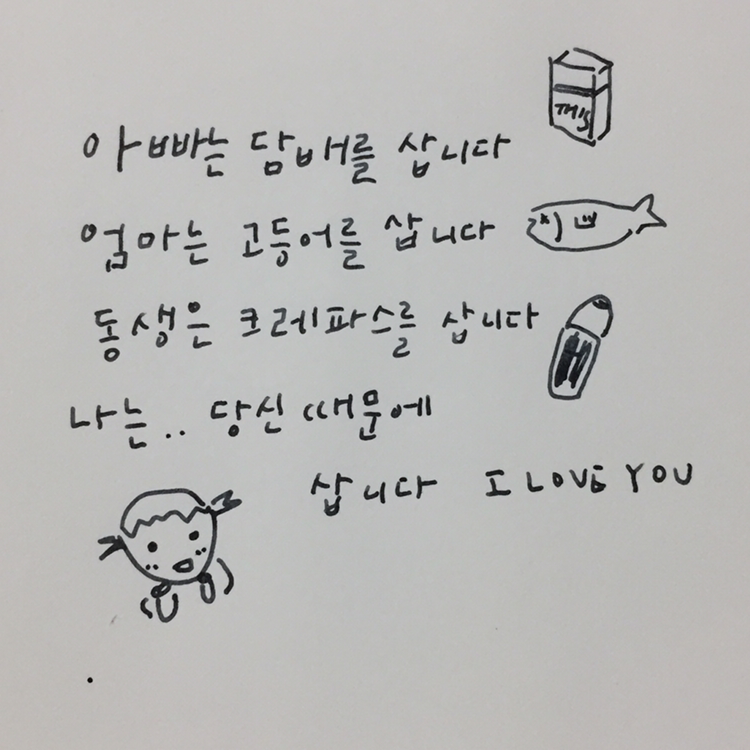 THIS
아빠는 담배를 삽니다
엄마는 고등어를 삽니다
동생은 크레파스를 삽니다
나는.. 당신 때문에
삽니다 I LOVE YOU